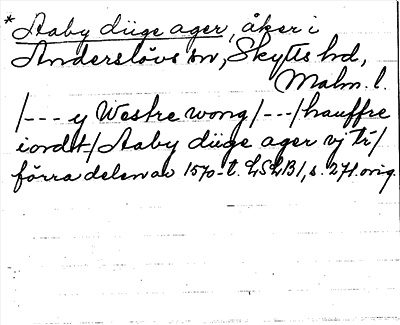 * Aaby diige ager, åker i
Anderslövs sn, Skytts hd,
Malm. l.
/--- y Westre wong/---/hauffre
iordt-/ Aaby diige ager vj tr/
förra delen av 1570-t. LSLB1, s. 271. orig.